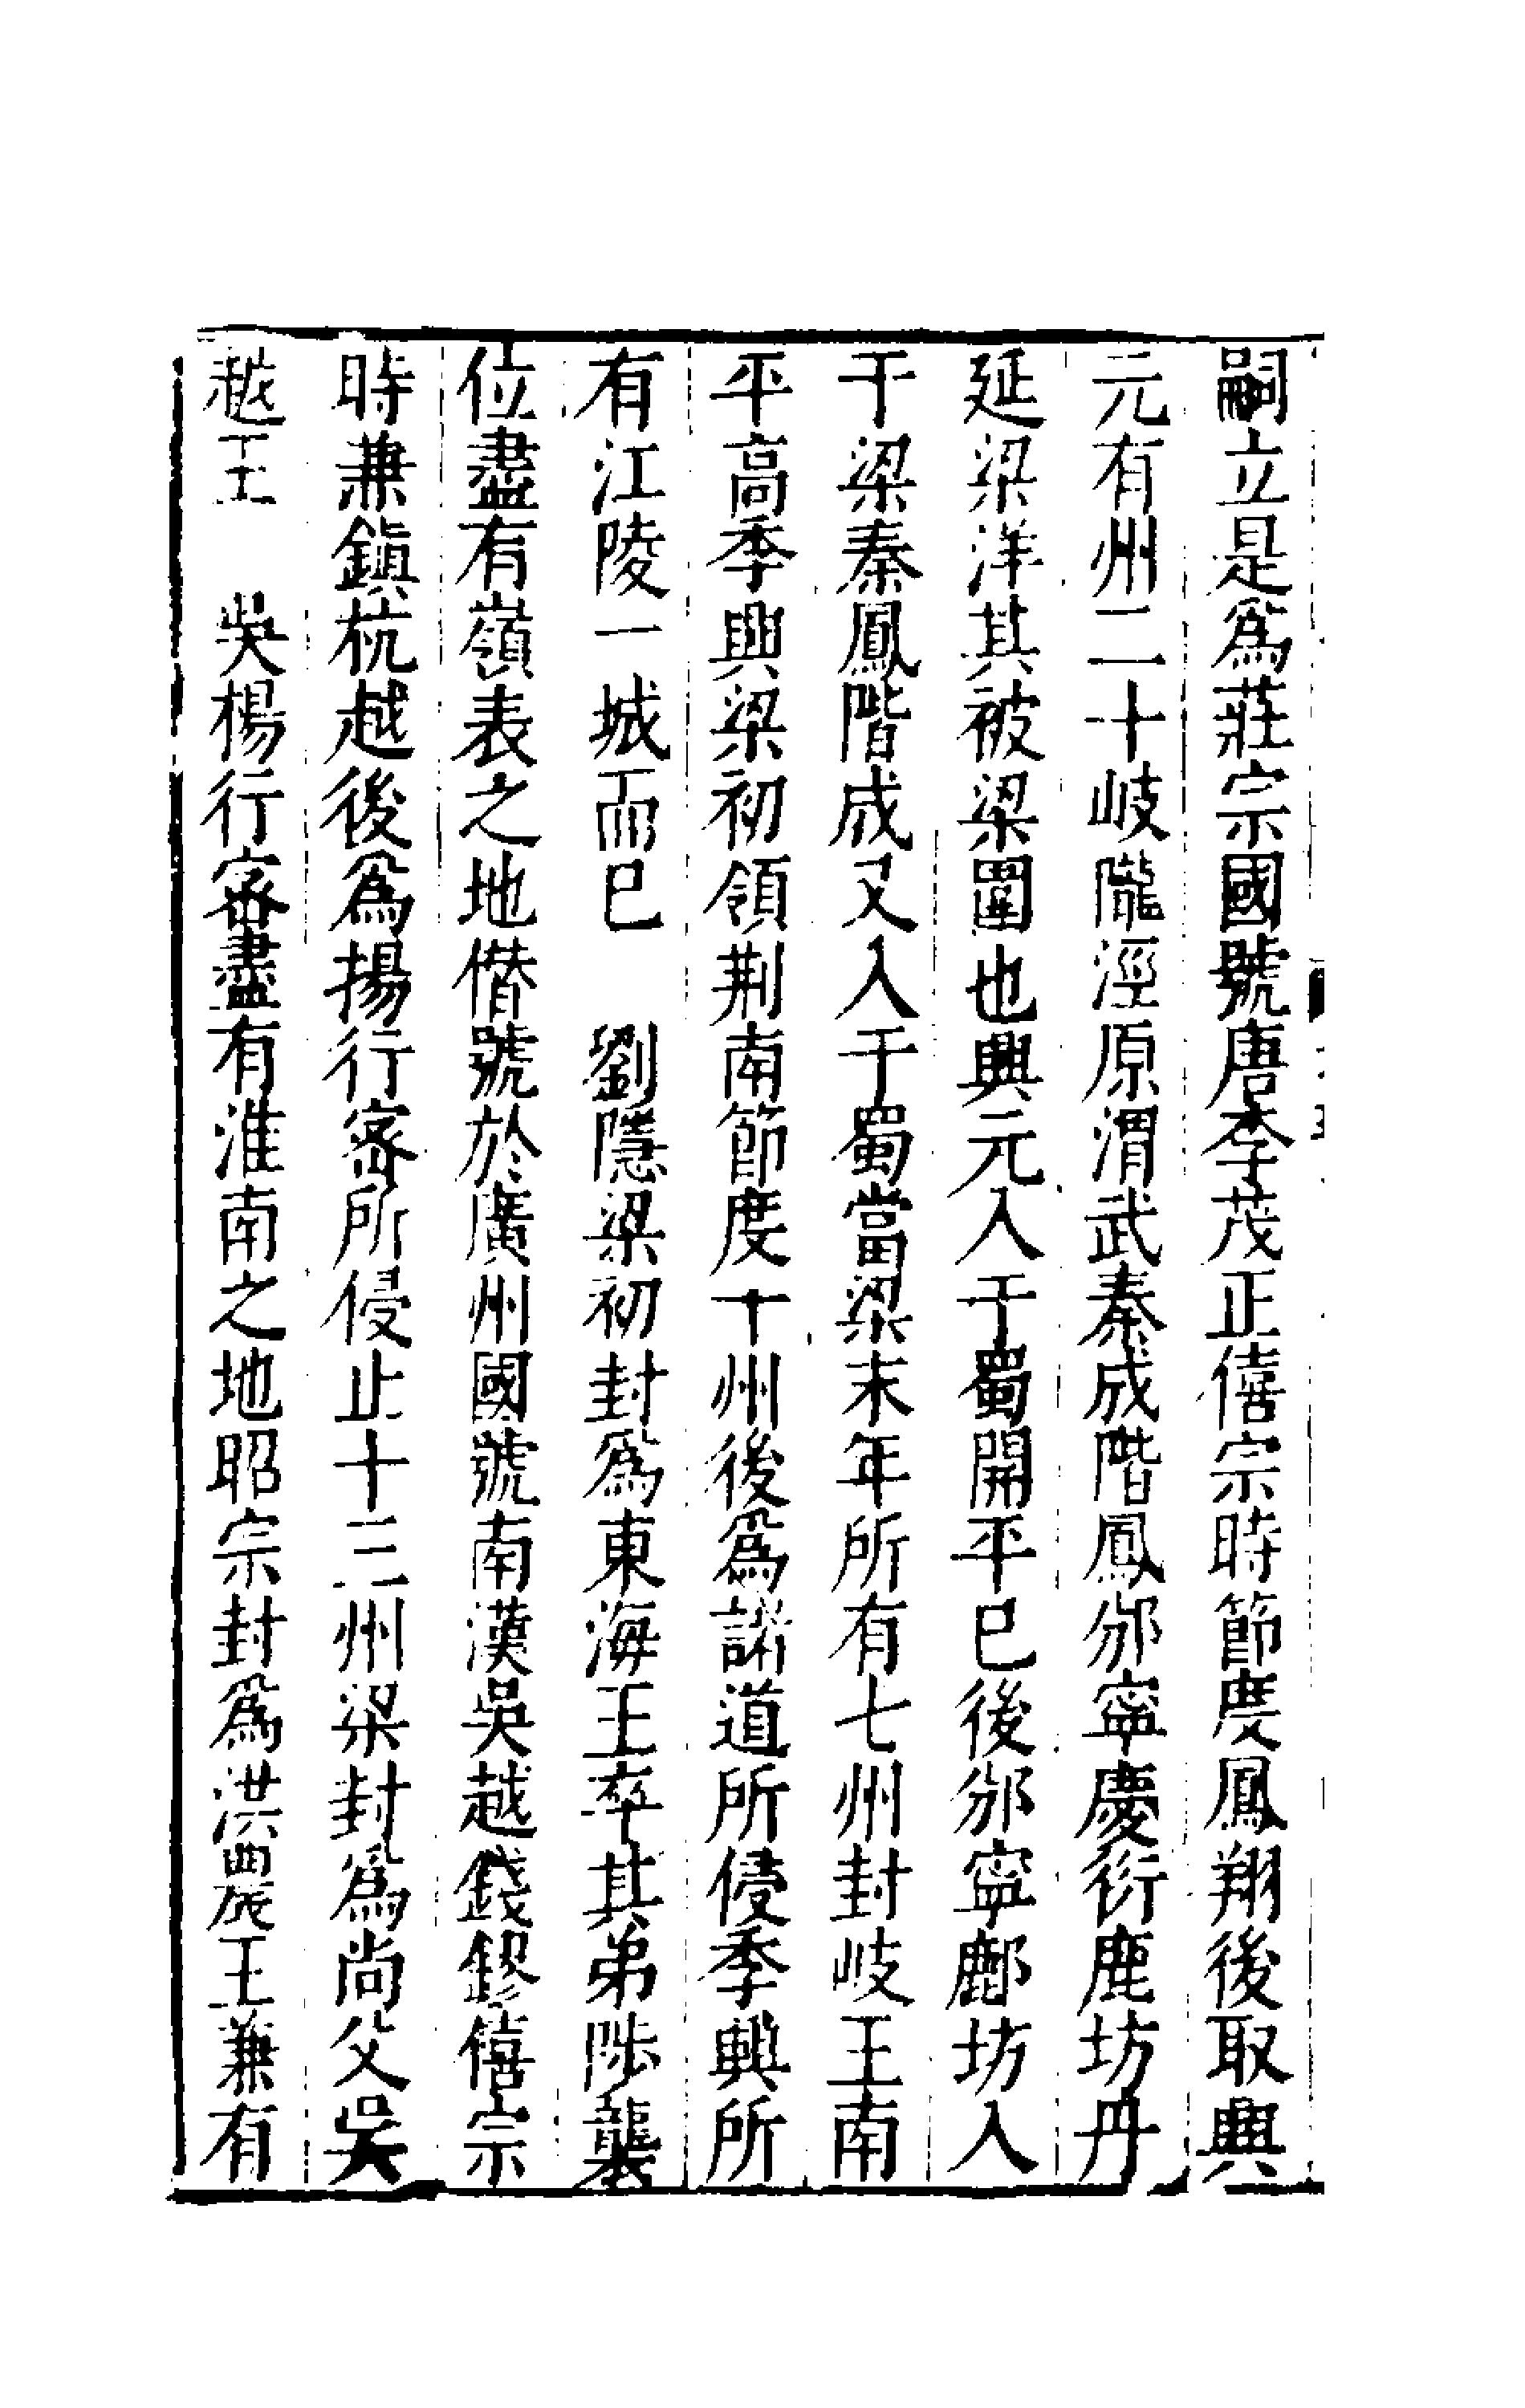 嗣立是爲莊宗國號唐李茂正僖宗時節度鳳翔後取興
元有州二十岐隴涇原渭武秦成階鳳邠寧慶衍鹿坊丹
延梁洋其被梁圍也興元入于蜀開平巳後邠寧鄜坊入
于梁秦鳳階成又入于蜀當梁末年所有七州封岐王南
平高季興梁初領荆南節度十州後爲諸道所侵季興所
有江陵一城而巳　劉隱梁初封爲東海王卒其弟陟襲
位盡有嶺表之地僭號於廣州國號南漢吳越錢鏐僖宗
時兼鎭杭越後爲揚行密所侵止十三州梁封爲尚父吳
越王　吳楊行密盡有淮南之地昭宗封爲洪農王兼有